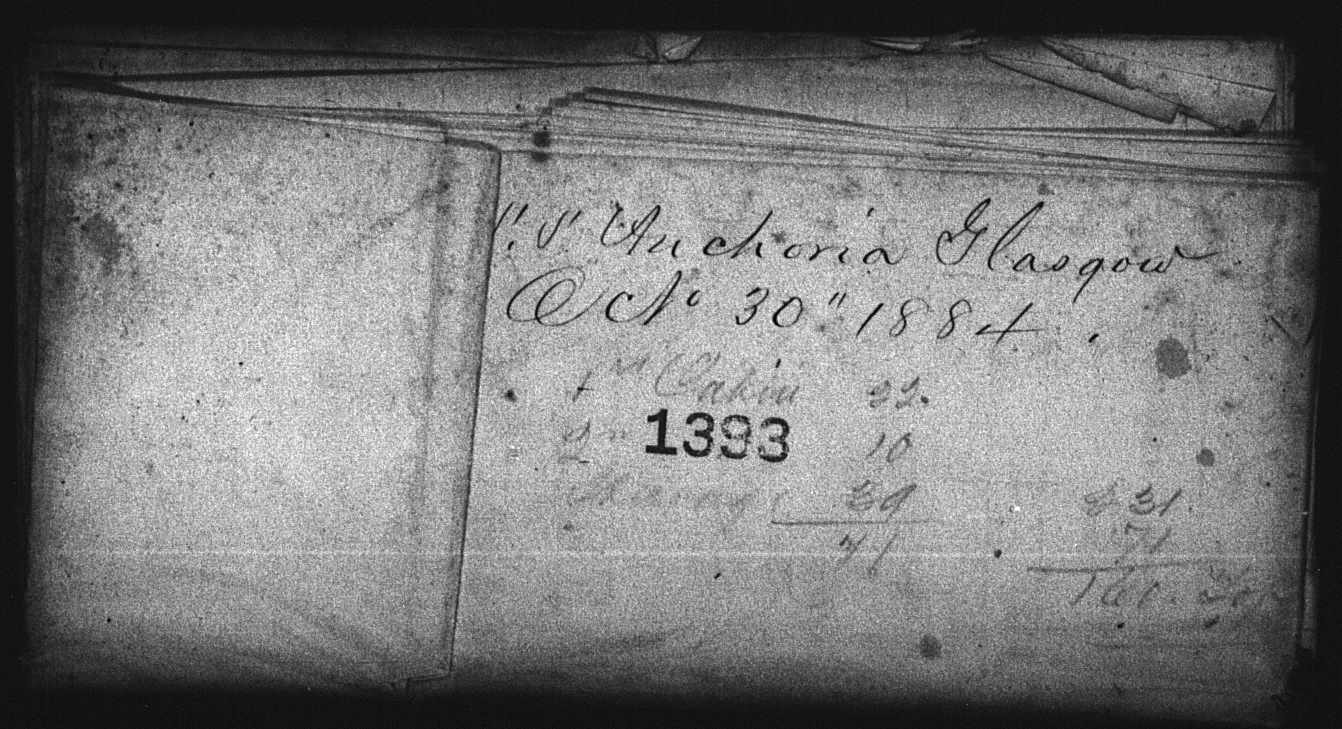 "S" Anchoria Glasgow
O No 30" 1884.
1st Cabin 22.
1393
2nd 10
Steerage 39 31.
71 71